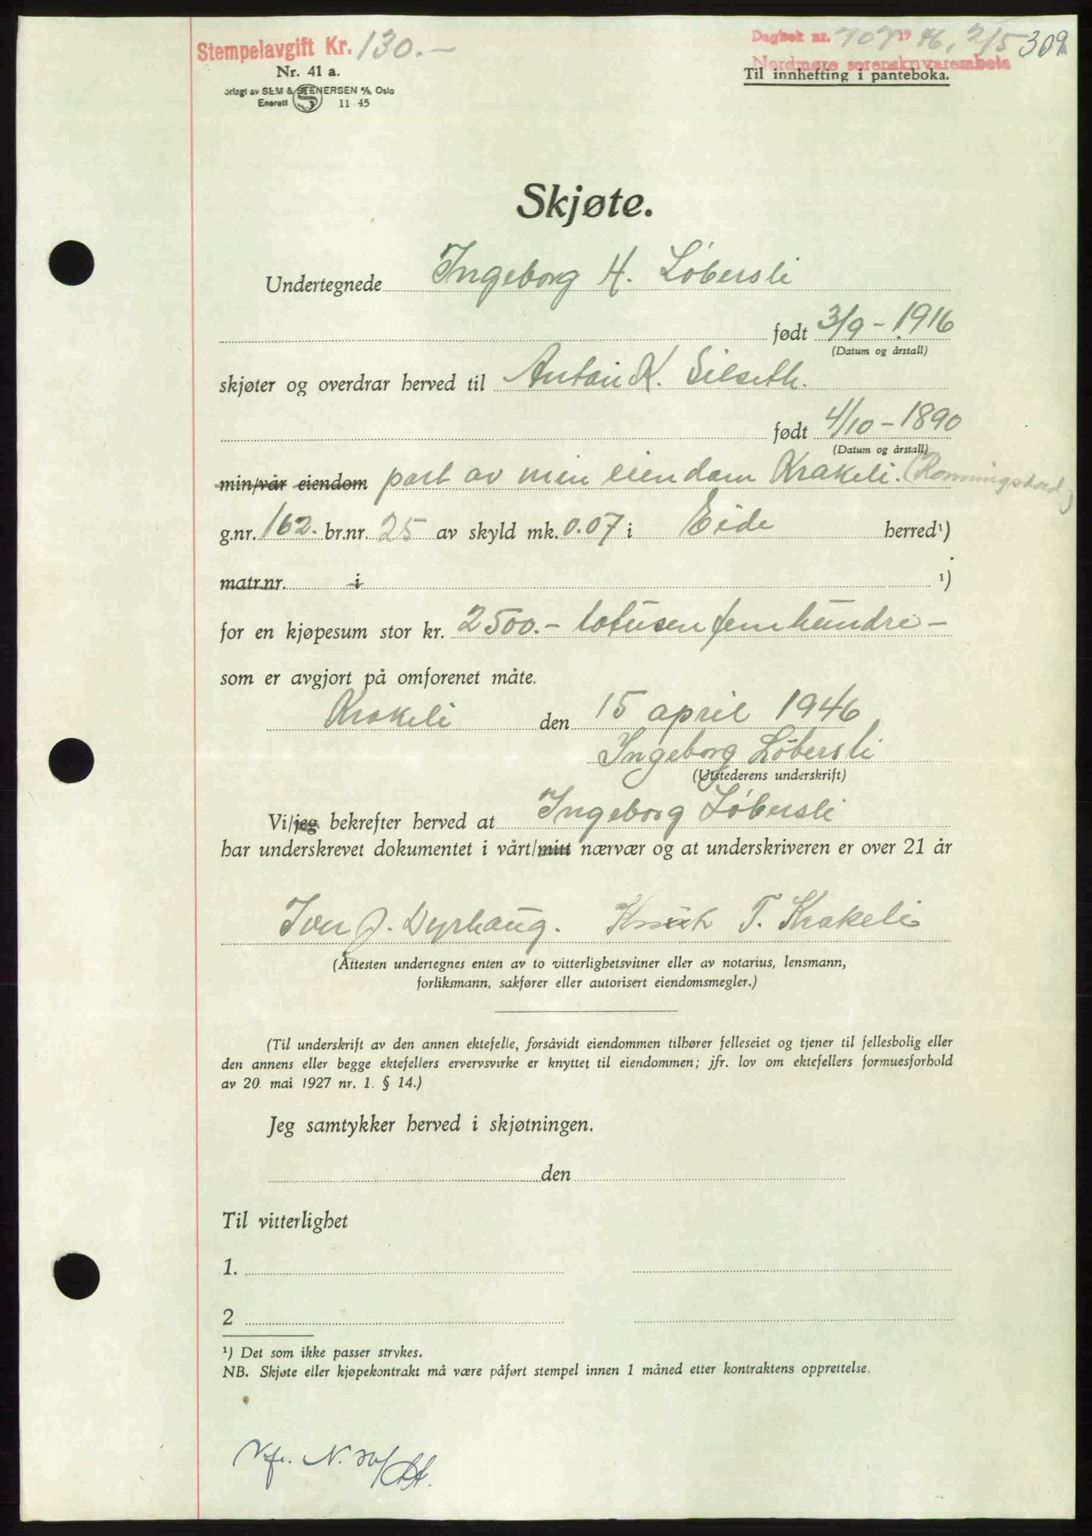 Stempelavgift Kr. 130.—
Dagbok nr. 707 1946, 2/5 309
Nordmøre sorenskriverembete
Nr. 41 a.
Til innhefting i panteboka.
orlagt av SEM & STENERSEN A/S, Oslo
Enerett S 11 45
Skjøte.
Undertegnede Ingeborg H. Løbersli
født 3/9 - 1916
(Datum og årstall)
skjøter og overdrar herved til Anton K. Silseth.
født 4/10 - 1890
(Datum og årstall)
min/vår eiendom part av min eiendom Krakeli. (Ronningstad)
g.nr. 162. br.nr. 25 av skyld mk. 0.07 i Eide herred¹)
matr.nr. i ¹)
for en kjøpesum stor kr. 2500.- totusenfemhundre -
som er avgjort på omforenet måte.
Krakeli den 15 april 1946
Ingeborg Løbersli
(Utstederens underskrift)
Vi/jeg bekrefter herved at Ingeborg Løbersli
har underskrevet dokumentet i vårt/mitt nærvær og at underskriveren er over 21 år
Iver J. Dyrhaug. Knut T. Krakeli
(Attesten undertegnes enten av to vitterlighetsvitner eller av notarius, lensmann,
forliksmann, sakfører eller autorisert eiendomsmegler.)
(Til underskrift av den annen ektefelle, forsåvidt eiendommen tilhører felleseiet og tjener til fellesbolig eller
den annens eller begge ektefellers ervervsvirke er knyttet til eiendommen; jfr. lov om ektefellers formuesforhold
av 20. mai 1927 nr. 1. § 14.)
Jeg samtykker herved i skjøtningen.
den
Til vitterlighet
1.
2
¹) Det som ikke passer strykes.
NB. Skjøte eller kjøpekontrakt må være påført stempel innen 1 måned etter kontraktens opprettelse.
N.